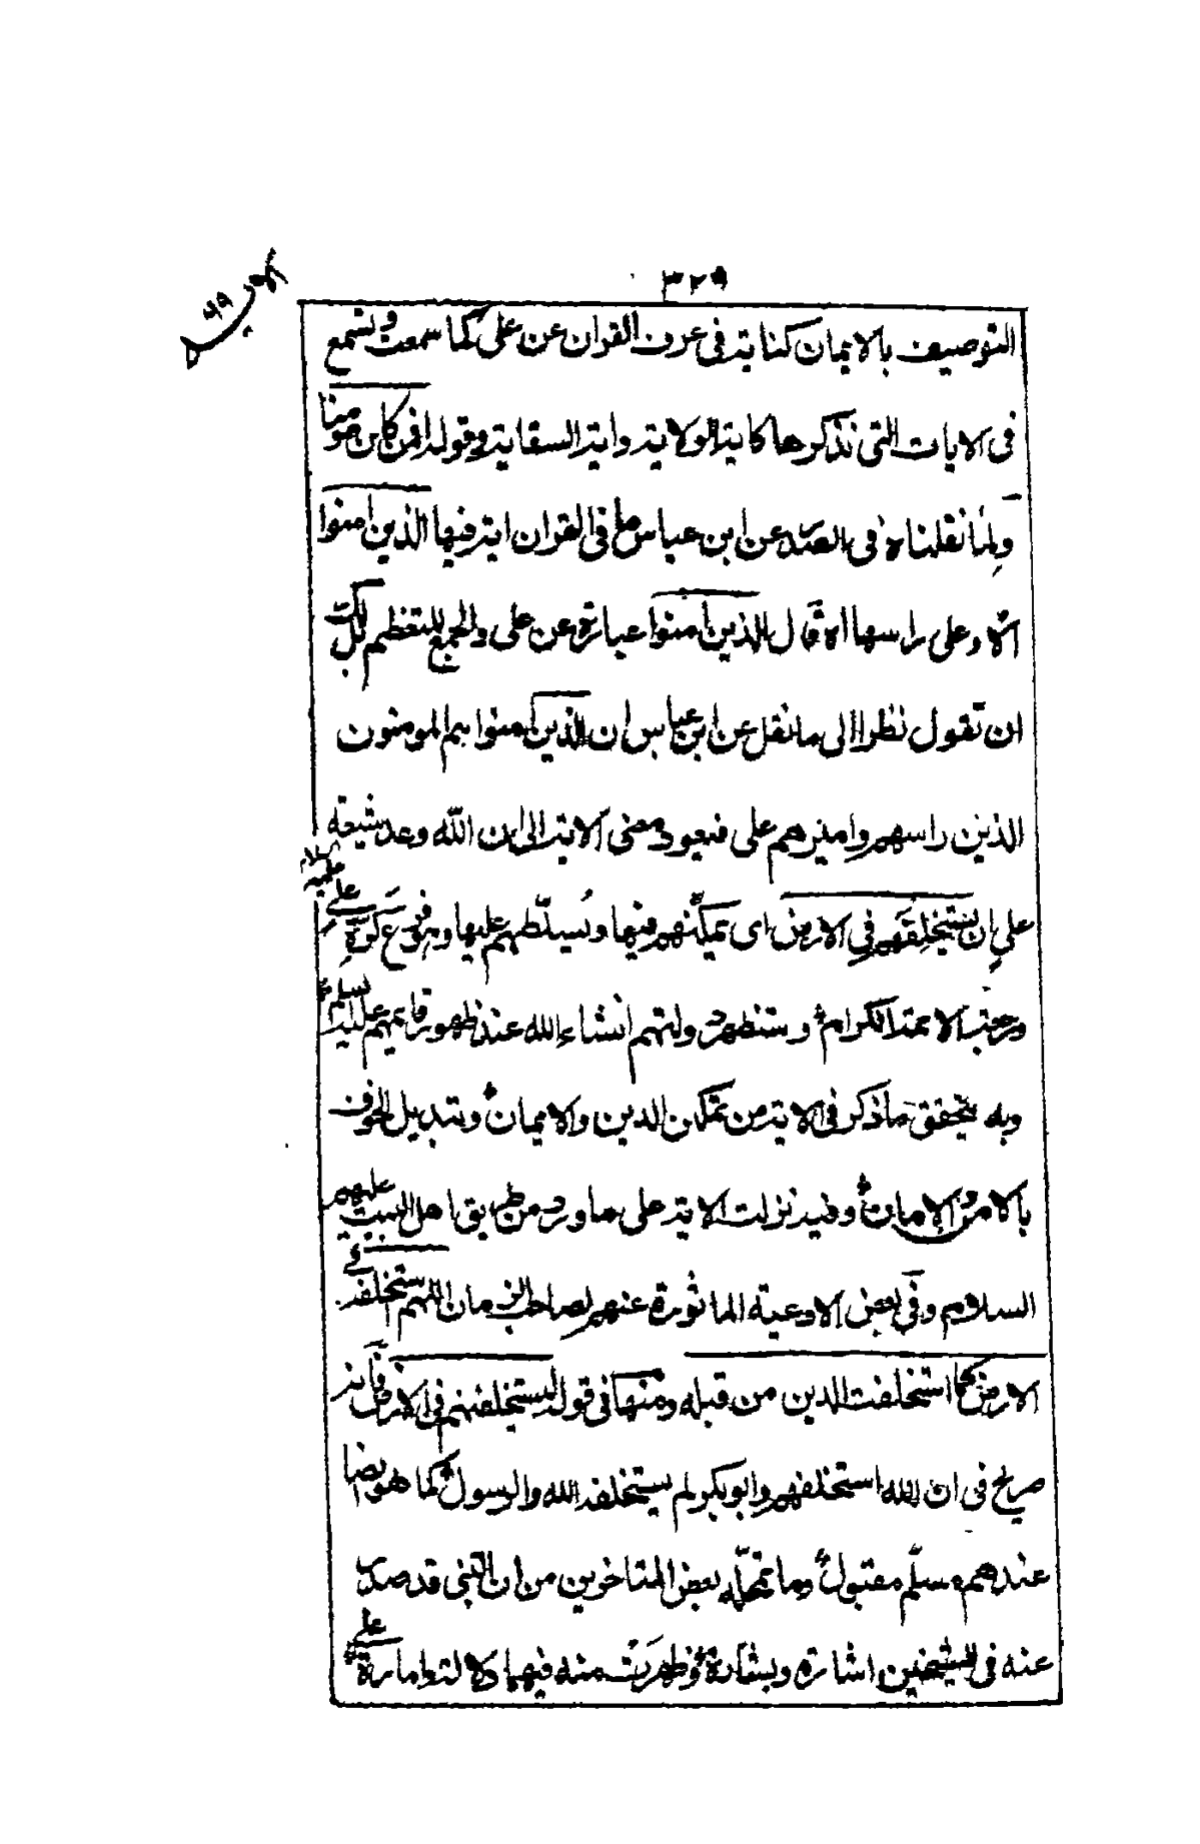 ٣٢٩
الآية ٦٩
التوصيف بالايمان كناية فى عرف القران عن على كما سمعت وتسمع
فى الايات التى نذكرها كاية الولاية واية السقاية وقوله افمن كان مومنا
ولما نقلناه فى عن ابن عباس ما فى القران اية فيها الذين امنوا
الا وعلى راسها اه قال الذين امنوا عبارة عن على والجمع للتعظيم لك
ان تقول نظرا الى ما نقل عن ابن عباس ان الذين امنوا هم المومنون
الذين راسهم واميرهم على فيعود معنى الاية الى ان الله وعد شيعة
على ان يستخلفهم فى الارض اى يمكّنهم فيها ويُسلّطهم عليها وهو كرّة على عليه السلام
ورجعة الائمة الكرام وستظهر دولتهم انشاء الله عند ظهور قايمهم عليه السلام
وبه يتحقق ما ذكر فى الاية من تمكين الدين والايمان وتبديل الخوف
بالامن والامان وفيه نزلت الاية على ما ورد من طريق اهل البيت عليهم
السلام وفى بعض الادعية الماثورة عنهم لصاحب الزمان اللهم استخلفه فى
الارض كما استخلفت الذين من قبله ومنها فى قوله ليستخلفنهم فى الارض فانه
صريح فى ان الله استخلفهم وابو بكر لم يستخلفه الله والرسول كما هو ايضا
عندهم مسلّم مقبول وما تمحّله بعض المتاخرين من ان النبى قد صدر
عنه فى الشيخين اشارة وبشارة وظهرت منه فيهما دلالة وامارة على